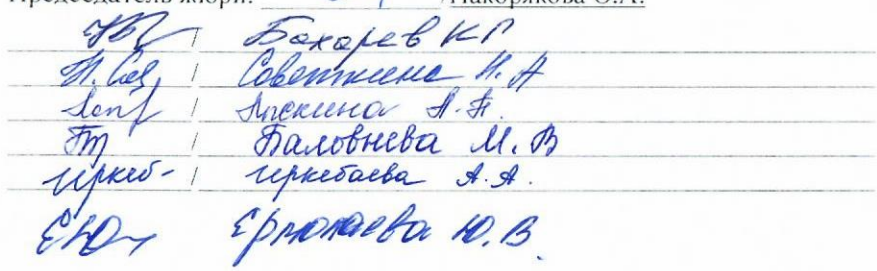 Председатель жюри: / Накорякова О.А.
/ Бахарев К П
Н. Сов / Советкина Н. А
/ Лискина А. П.
/ Баловнева М. В
черкеб- / черкебаева А. А.
Ермолаева Ю. В.